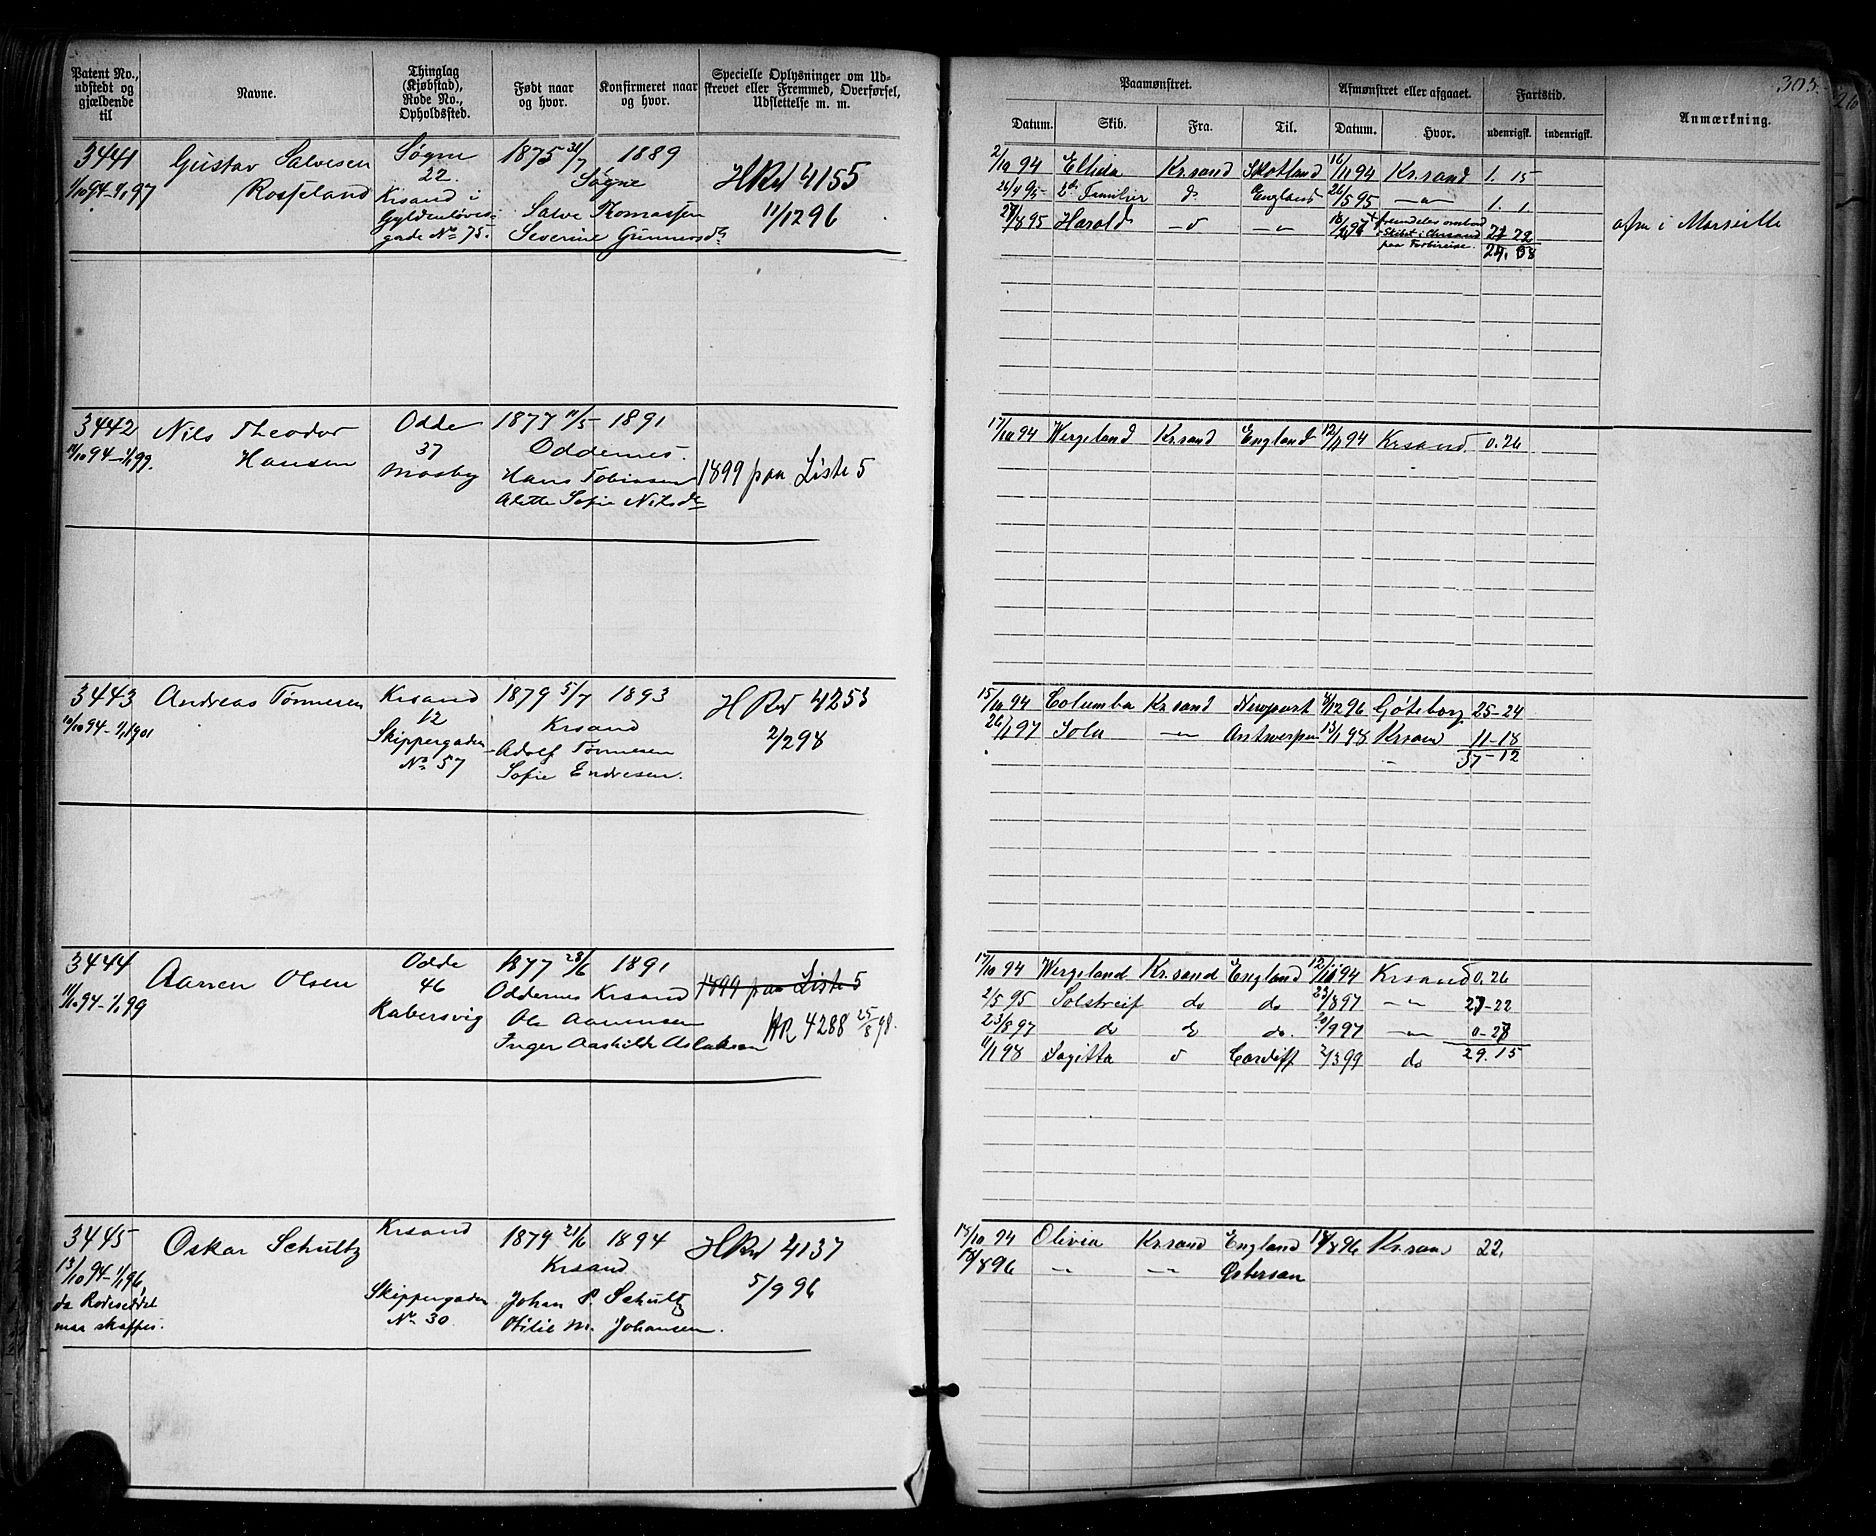 Patent No., udstedt og gjældende til
Navne.
Thinglag (Kjøbstad), Rode No., Opholdssted.
Født naar og hvor.
Konfirmeret naar og hvor.
Specielle Oplysninger om Udskrevet eller Fremmed, Overførsel, Udslettelse m. m.
Paamønstret.
Afmønstret eller afgaaet.
Fartstid.
Anmærkning.
305.
Datum. Skib. Fra. Til. Datum. Hvor. udenrigsk. indenrigsk.
3441
1/10 94-1/1 97
Gustav Salvesen
Rosseland
Søgne
22
Krsand i
Gyldenløves
gade No 75.
1875 31/7 1889
Søgne
Salve Thomassen
Severine Gunnersdr
H Rul 4155
11/12 96
2/10 94 Ellida Kr.sand Skotland 16/11 94 Kr.sand 1. 15
26/4 95 2de Familier do England 26/5 95 -"- 1. 1.
27/8 95 Harald -"- -"-
27 22
29. 08
afm i Marseille
3442
11/10 94-1/1 99.
Nils Theodor
Hansen
Odde
37
Mosby
1877 11/5 1891
Oddernes.
Hans Tobiassen
Alette Sofie Nilsdr
1899 paa Liste 5
17/10 94 Wergeland Kr.sand England 12/11 94 Krsand 0.26
3443
10/10 94-1/1 1901
Andreas Tønnesen
Krsand
12
Skippergaden
No 57
1879 5/7 1893
Krsand
Adolf Tønnesen
Sofie Endresen.
H Rul 4253
2/2 98
15/10 94 Columba Kr.sand Newport 4/12 96 Göteborg 25-24
26/1 97 Sola -"- Antwerpen 13/1 98 Krsan 11-18
37-12
3444
11/10 94-1/1 99
Aanen Olsen
Odde
46
Kabersvig
1877 28/6 1891
Oddernes Krsand
Ole Aanensen
Inger Aashilde Aslaksen
1899 paa Liste 5
HR 4288 25/8 98.
17/10 94 Wergeland Kr.sand England 12/11 94 Krsand 0.26
2/5 95 Solstreif do do 23/8 97 -"- 27-22
23/8 97 do do do. 20/9 97 -"- 0-27
11/1 98 Sagitta Cardiff 2/3 99 do 29.15
3445
13/10 94-1/1 96,
da Rodeseddel
maa skaffes.
Oskar Schultz
Krsand
Skippergaden
No 30
1879 21/6 1894
Krsand
Johan P. Schultz
Otilie M. Johansen.
H Rul 4137
5/9 96
18/10 94 Olivia Kr.sand England 18/8 96 Kr.san 22.
18/8 96 -"- -"- Østersøen